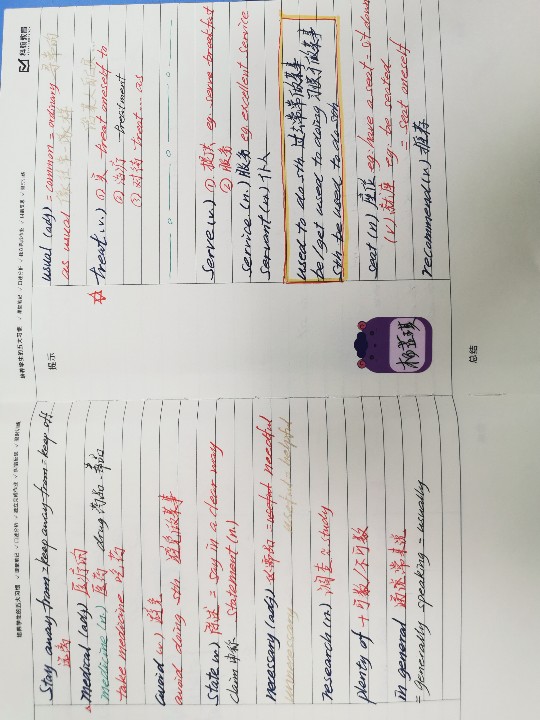 科桥教育
usual (adj) = common = ordinary
as usual
treat (v.) ① 请 treat oneself to
② 治疗 treatment
③ 对待 treat... as
serve (v) ① 提供 eg serve breakfast
② 服务
service (n.) 服务 eg excellent service
servant (n) 仆人
used to do sth 过去常常做某事
be/get used to doing 习惯于做某事
sth be used to do sth
seat (n) 座位 eg: have a seat = sit down
(v) 就坐 eg: be seated
= seat oneself
recommend (v) 推荐
提示
总结
stay away from = keep away from = keep off
远离
medical (adj) 医疗的
medicine (n) 医药 drug 药品、毒品
take medicine 吃药
avoid (v) 避免
avoid doing sth 避免做某事
state (v) 陈述 = say in a clear way
claim 声称 statement (n.)
necessary (adj) 必需的 = useful needful
unnecessary useful = helpful
research (n) 调查 ≈ study
plenty of + 可数/不可数
in general 通常来说
= generally speaking = usually